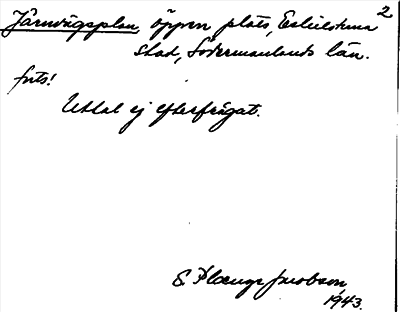 Järnvägsplan öppen plats, Eskilstuna 2
stad, Södermanlands län.
forts!
Uttal ej efterfrågat.
S Plænge Jacobson
1943.